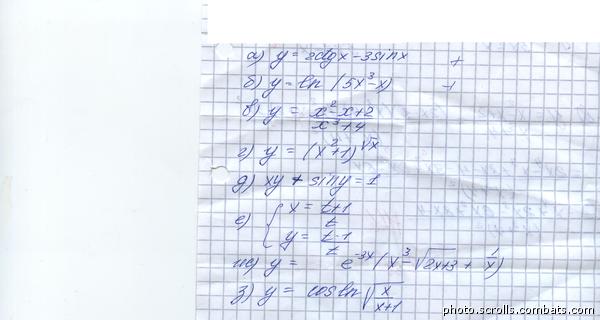 а) y = 2ctgx - 3sinx +
б) y = ln (5x³-x) +
в) y = (x²-x+2)/(x³+4)
г) y = (x²+1)^√x
д) xy + siny = 1
е) { x = (t+1)/t
y = (t-1)/t
ж) y = e^-3x (x³ - √(2x+3) + 1/x)
з) y = cos ln √(x/(x+1))
photo.scrolls.combats.com